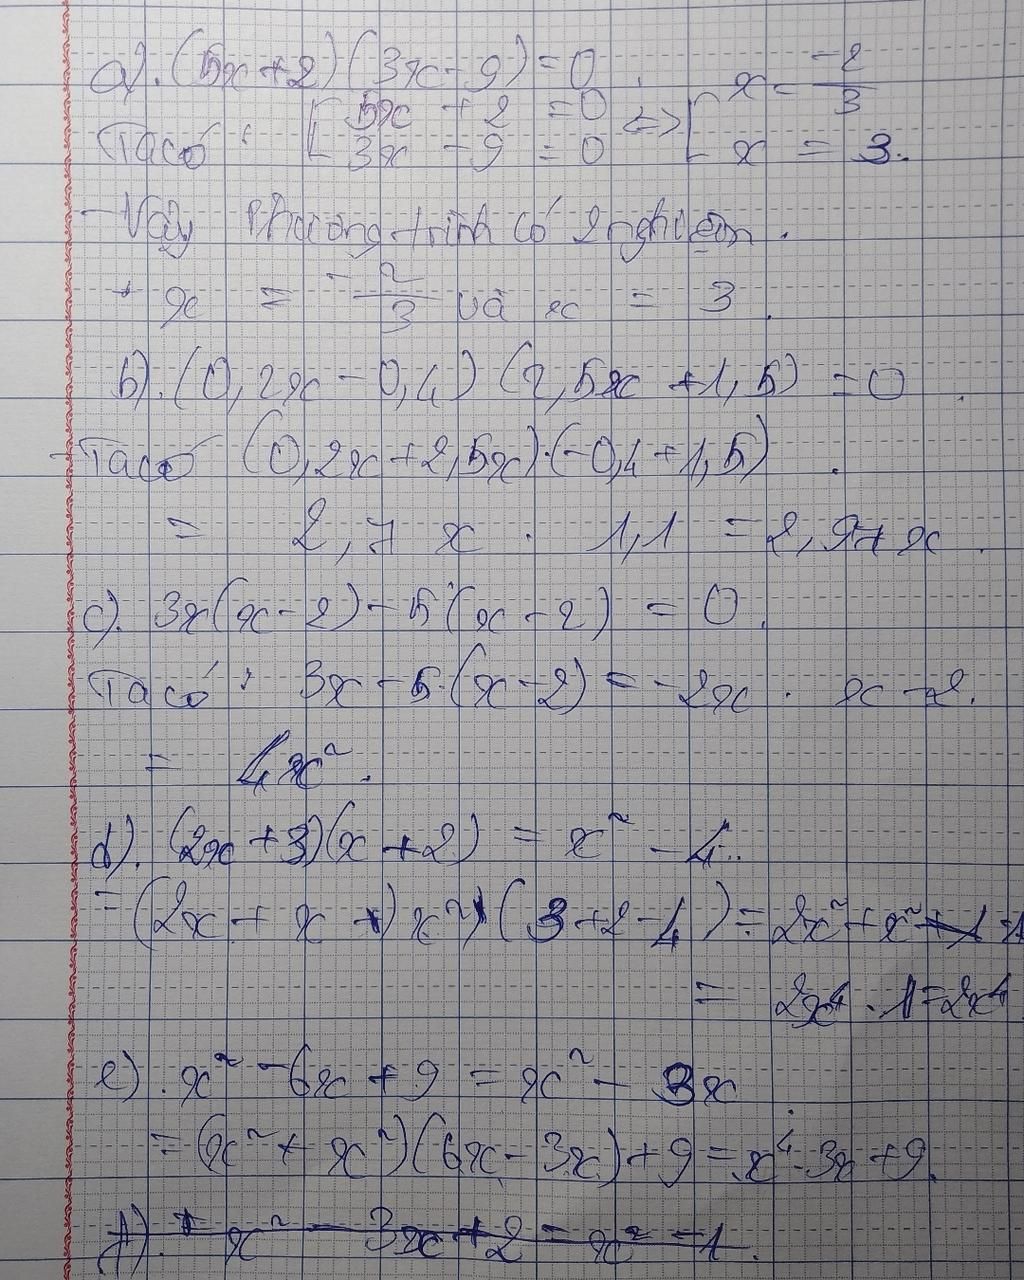 a). (5x+2)(3x-9)=0.
Ta có: [5x + 2 = 0 <=> [x = -2/3
3x - 9 = 0 x = 3.
- Vậy phương trình có 2 nghiệm.
+ x = -2/3 và x = 3.
b). (0,2x-0,4) (2,5x +1,5) =0.
Ta có (0,2x+2,5x).(-0,4+1,5).
= 2,7 x . 1,1 = 2,97x.
c). 3x(x-2)-5(x-2) = 0.
Ta có: 3x-5.(x-2) = -2x . x-2.
= 4x².
d). (2x+3)(x+2) = x² - 4..
= (2x + x +) x²)(3+2-4) = 2x²+x²
= 2x⁴ . 1=2x⁴
e). x² - 6x + 9 = x² - 3x.
= (x²+x²)(6x-3x)+9=x⁴-3x+9.
f). x² - 3x+2 = x² - 1.